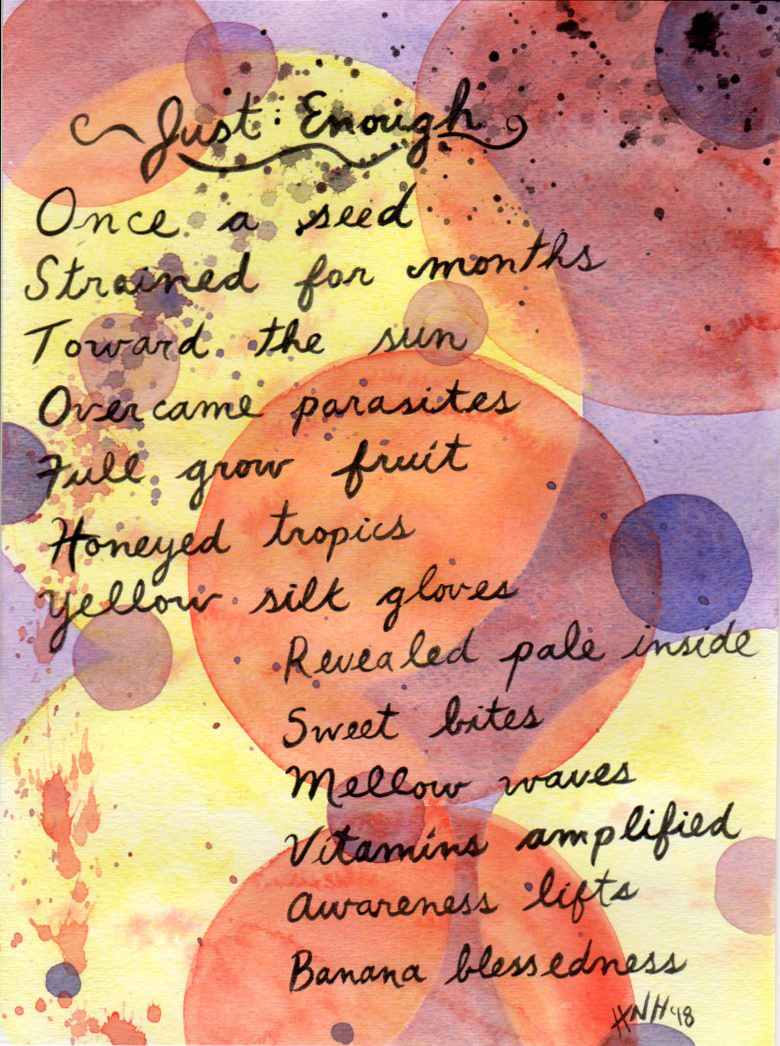 Just: Enough
Once a seed
Strained for months
Toward the sun
Overcame parasites
Full grow fruit
Honeyed tropics
Yellow silk gloves
Revealed pale inside
Sweet bites
Mellow waves
Vitamins amplified
Awareness lifts
Banana blessedness
HNH '18